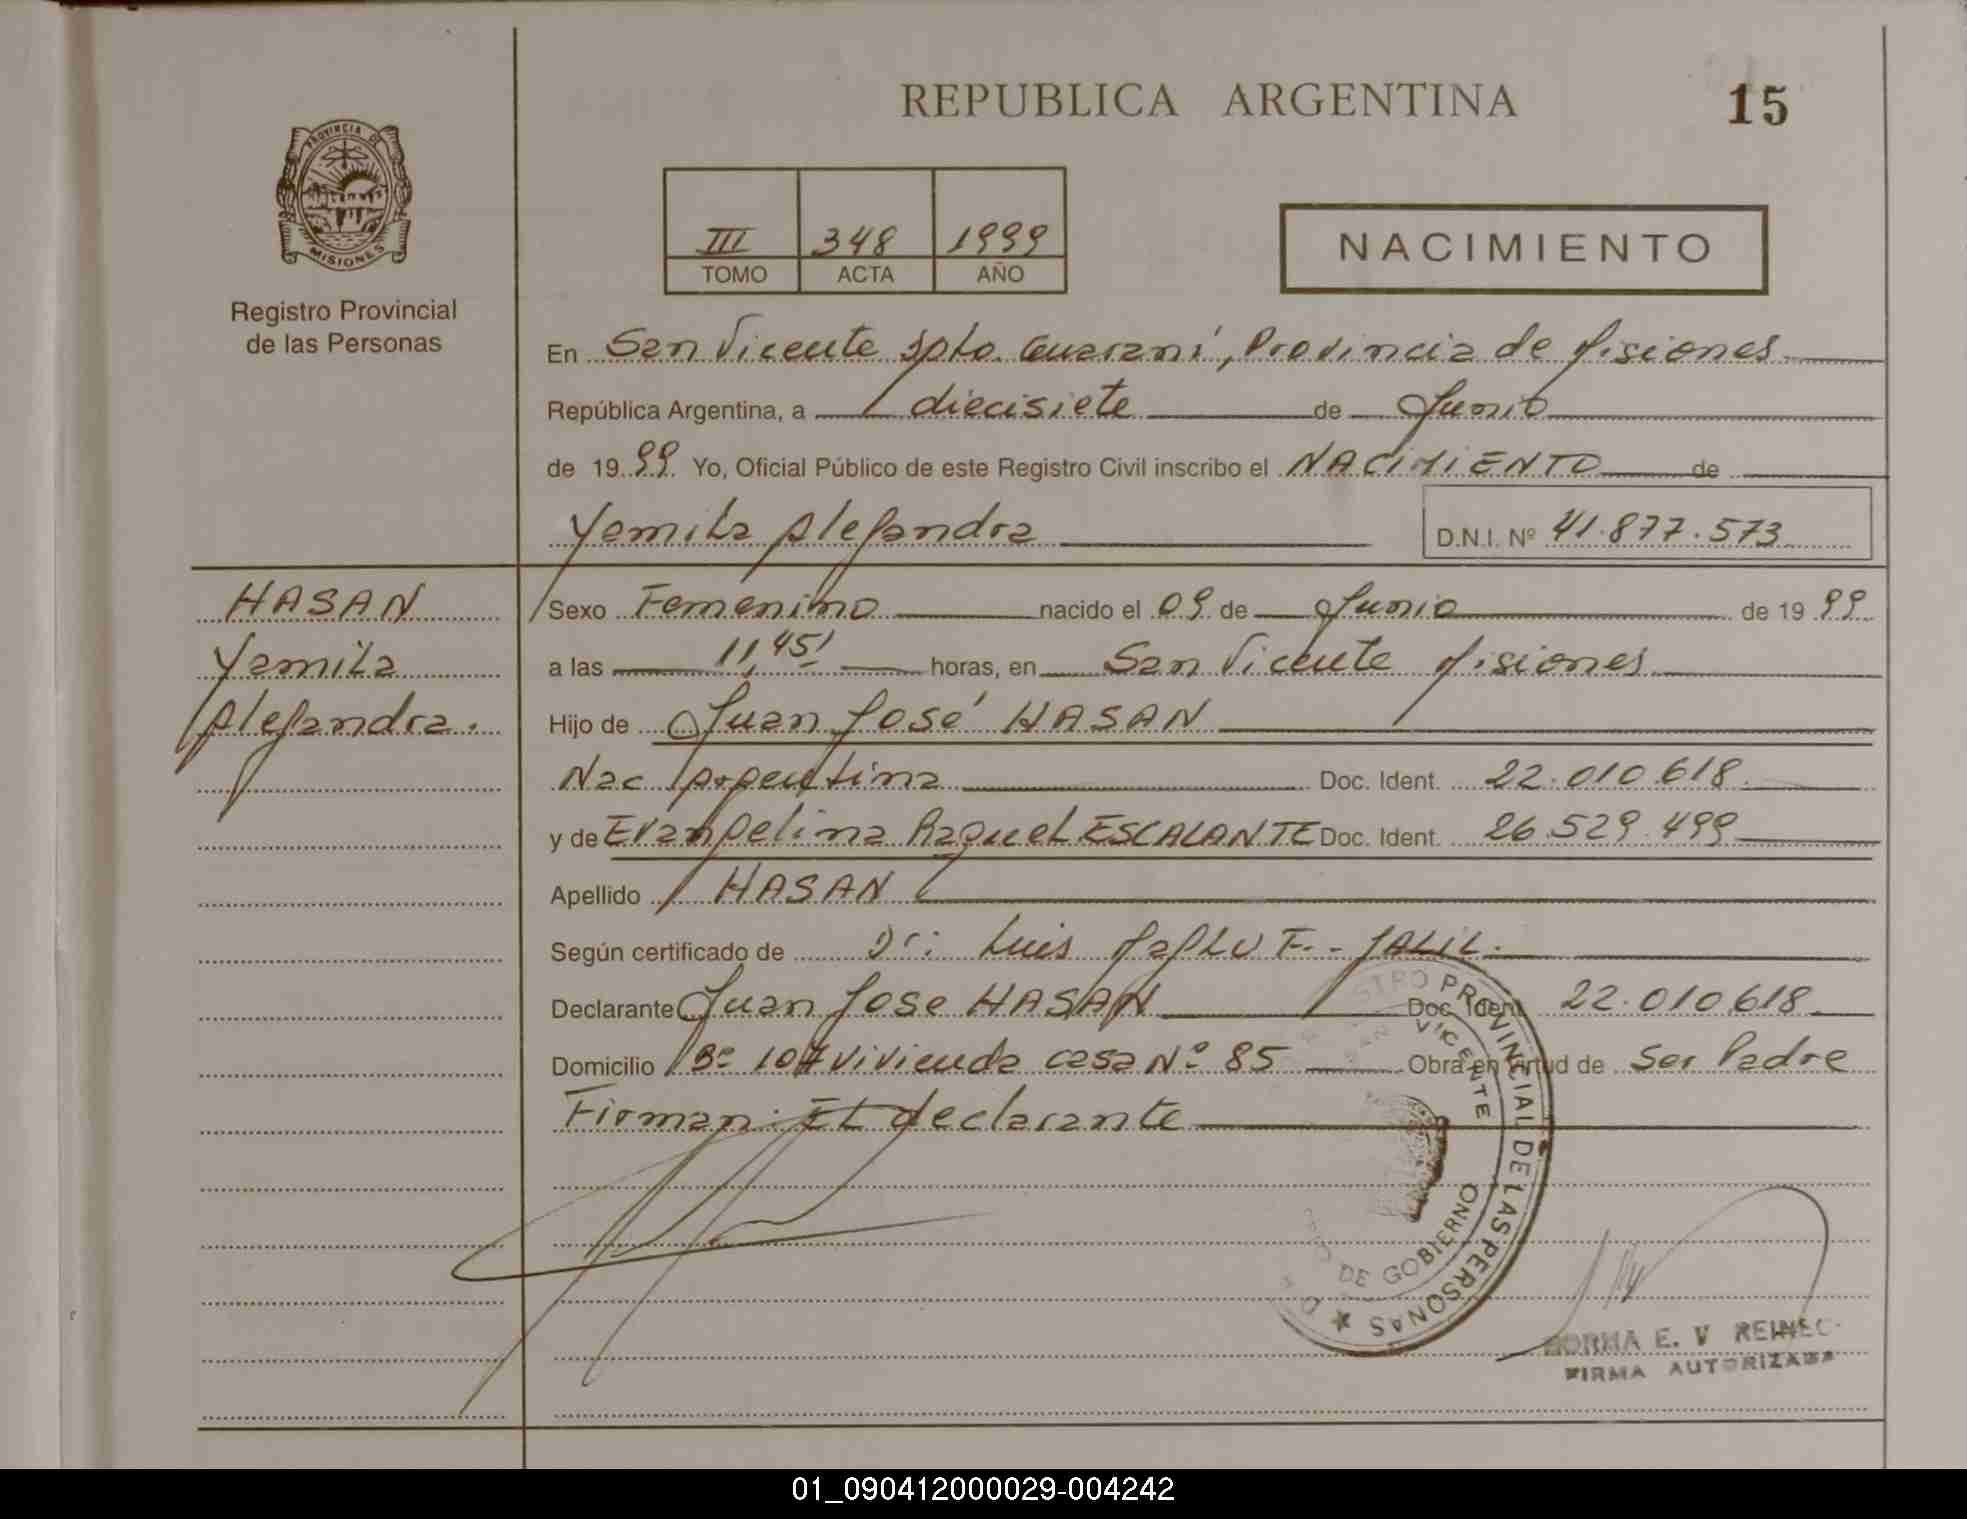 REPUBLICA ARGENTINA
15
PROVINCIA DE
MISIONES
Registro Provincial
de las Personas
III 348 1999
TOMO ACTA AÑO
NACIMIENTO
En San Vicente Dpto. Guaraní, Provincia de Misiones
República Argentina, a diecisiete de Junio
de 1999 Yo, Oficial Público de este Registro Civil inscribo el NACIMIENTO de
Yamila Alejandra D.N.I. Nº 41.877.573
HASAN
Yamila
Alejandra.
Sexo Femenino nacido el 09 de Junio de 1999
a las 11,45 horas, en San Vicente Misiones
Hijo de Juan José HASAN
Nac Argentina Doc. Ident. 22.010.618
y de Evangelina Raquel ESCALANTE Doc. Ident. 26.529.499
Apellido HASAN
Según certificado de Dr: Luis F. JALIL.
Declarante Juan Jose HASAN Doc. Ident. 22.010.618
Domicilio Bº 107 vivienda casa Nº 85 Obra en virtud de Ser Padre
Firman: El declarante
PROVINCIAL DE LAS PERSONAS
VICENTE
DE GOBIERNO
NORMA E. V REINEC
FIRMA AUTORIZADA
01_090412000029-004242